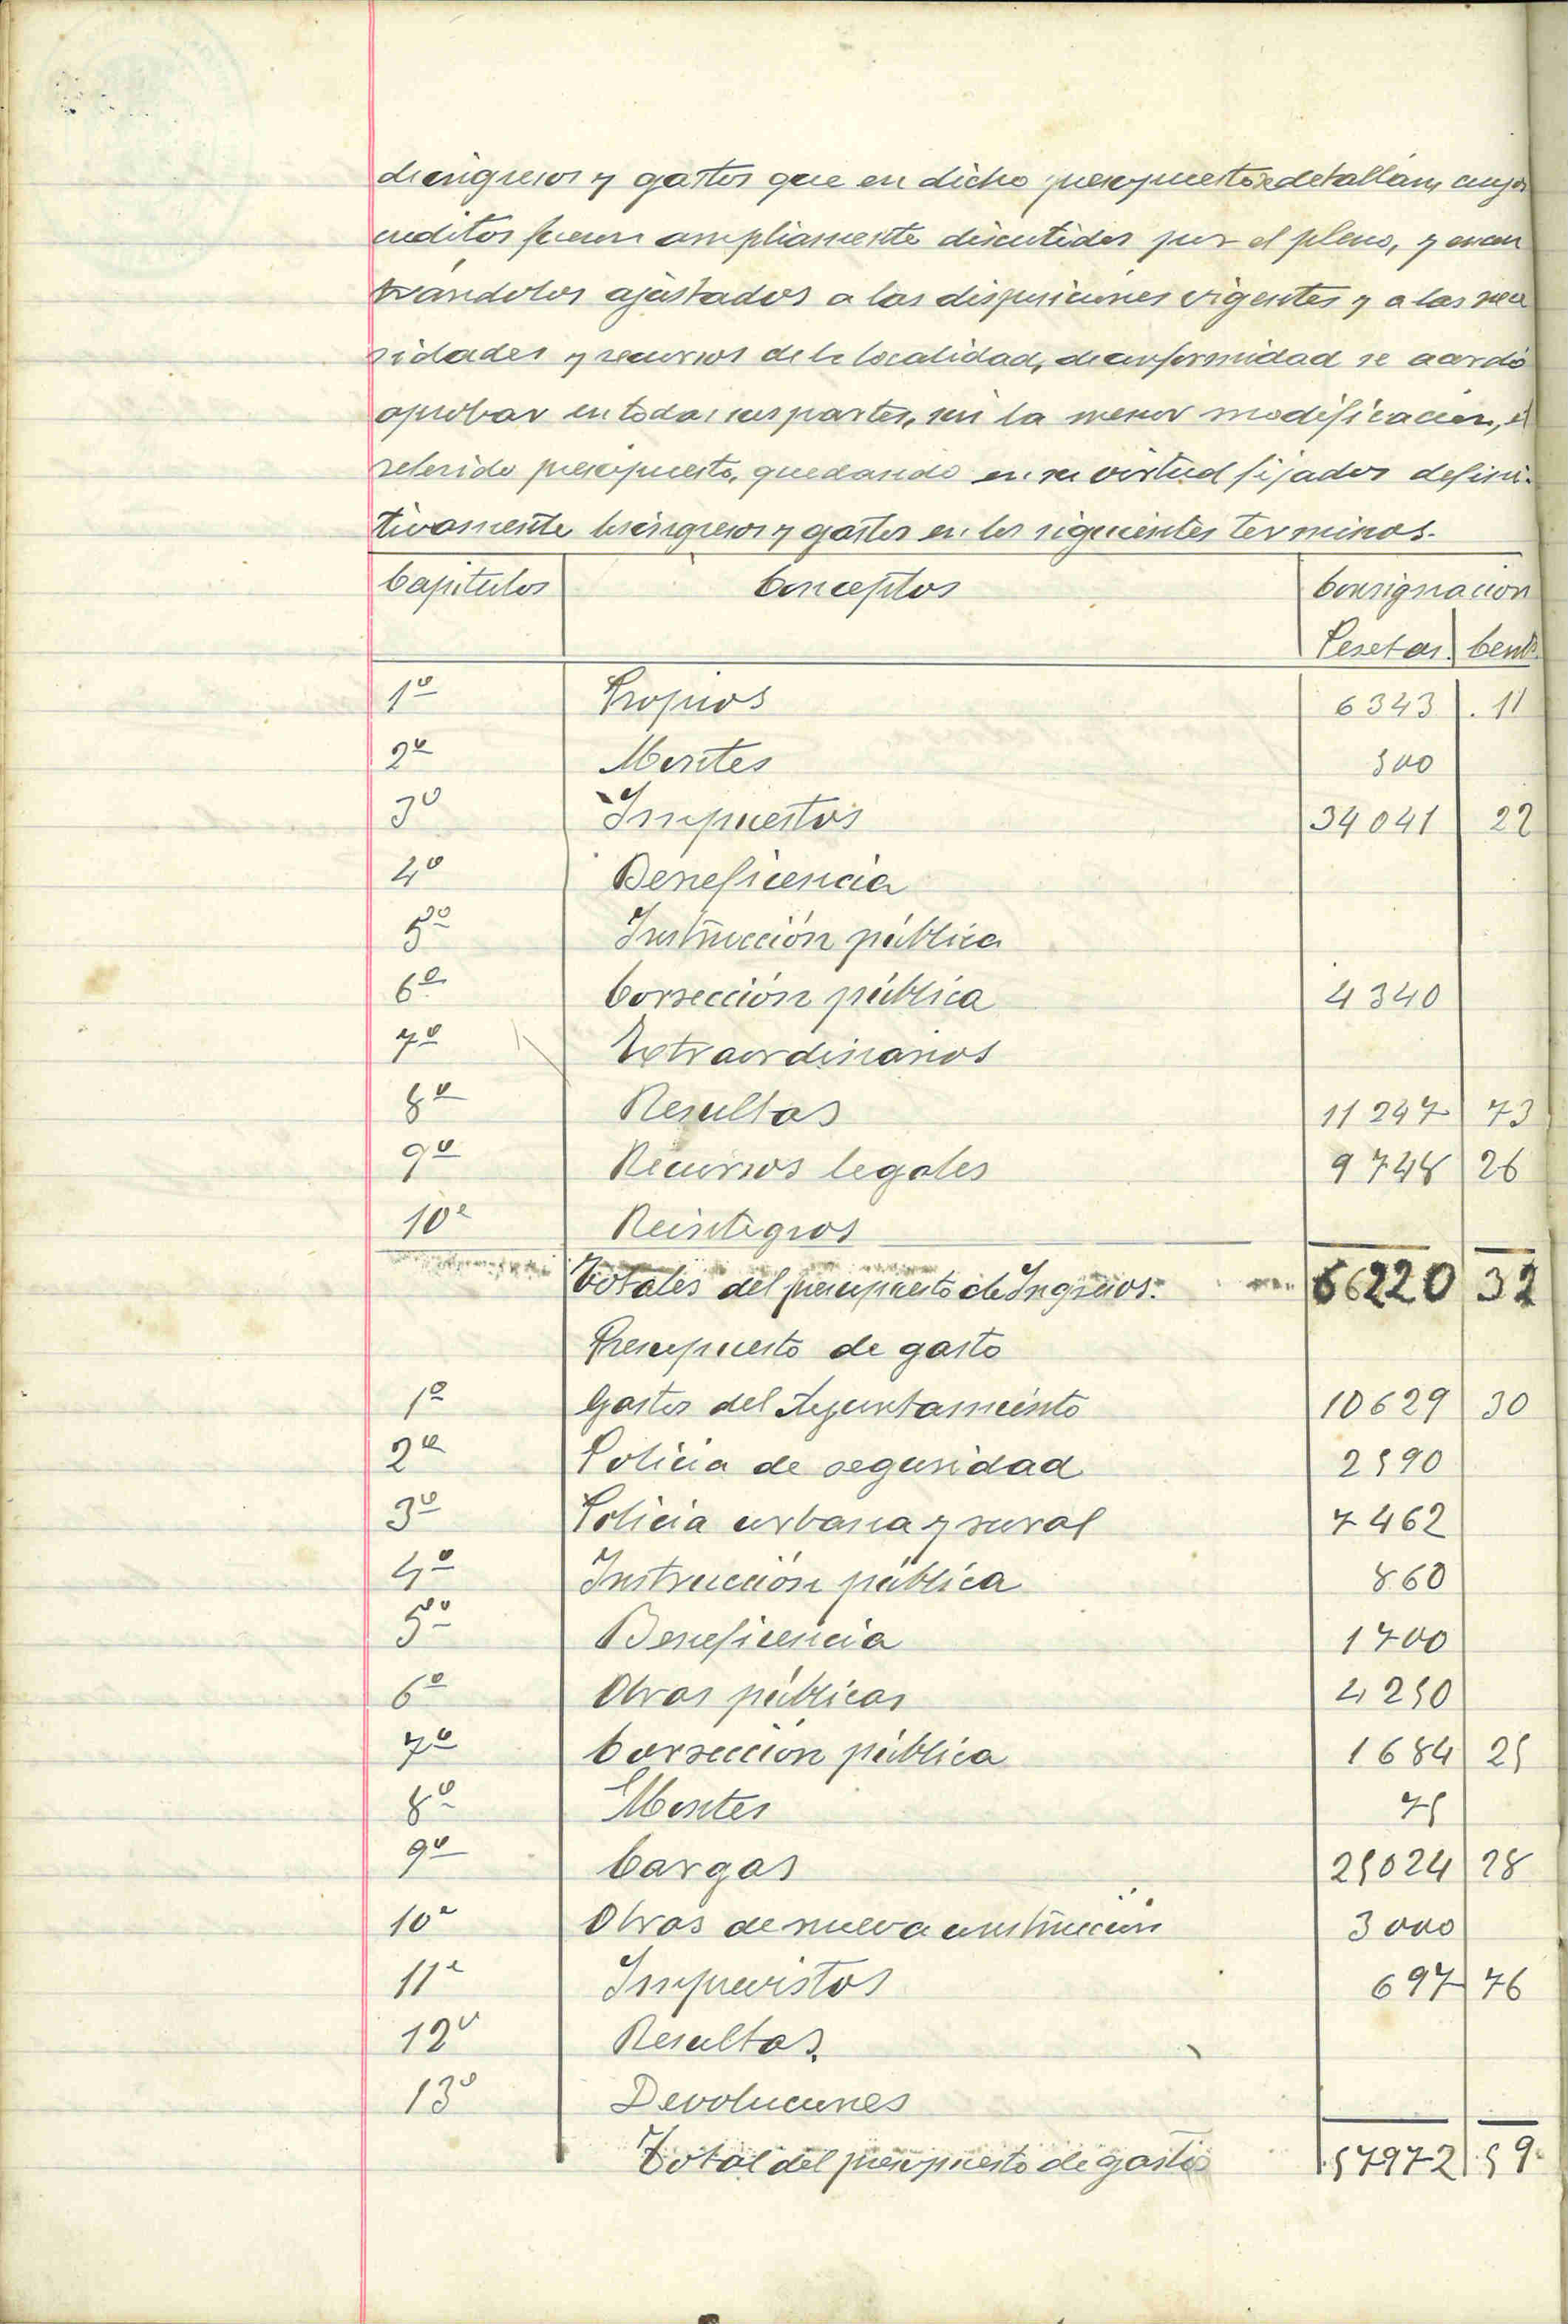 de ingresos y gastos que en dicho presupuesto se detallan, cuyos
creditos fueron ampliamente discutidos por el pleno, y encon
trandolos ajustados a las disposiciones vigentes y a las nece
sidades y recursos de la localidad, de conformidad se acordó
aprobar en todas sus partes, sin la menor modificacion, el
referido presupuesto, quedando en su virtud fijados defini-
tivamente los ingresos y gastos en los siguientes terminos.
Capitulos Conceptos Consignacion
Pesetas Cents
1º Propios 6343 . 11
2º Montes 500
3º Impuestos 34041 22
4º Beneficencia
5º Instrucción pública
6º Corrección pública 4340
7º Extraordinarios
8º Resultas 11247 73
9º Recursos legales 9748 26
10º Reintegros
Totales del presupuesto de Ingresos. 66220 32
Presupuesto de gasto
1º Gastos del Ayuntamiento 10629 30
2º Policia de seguridad 2590
3º Policia urbana y rural 7462
4º Instrucción pública 860
5º Beneficencia 1700
6º Obras públicas 4250
7º Corrección pública 1684 25
8º Montes 75
9º Cargas 25024 28
10º Obras de nueva construccion 3000
11º Imprevistos 697 76
12º Resultas
13º Devoluciones
Total del presupuesto de gastos 57972 59